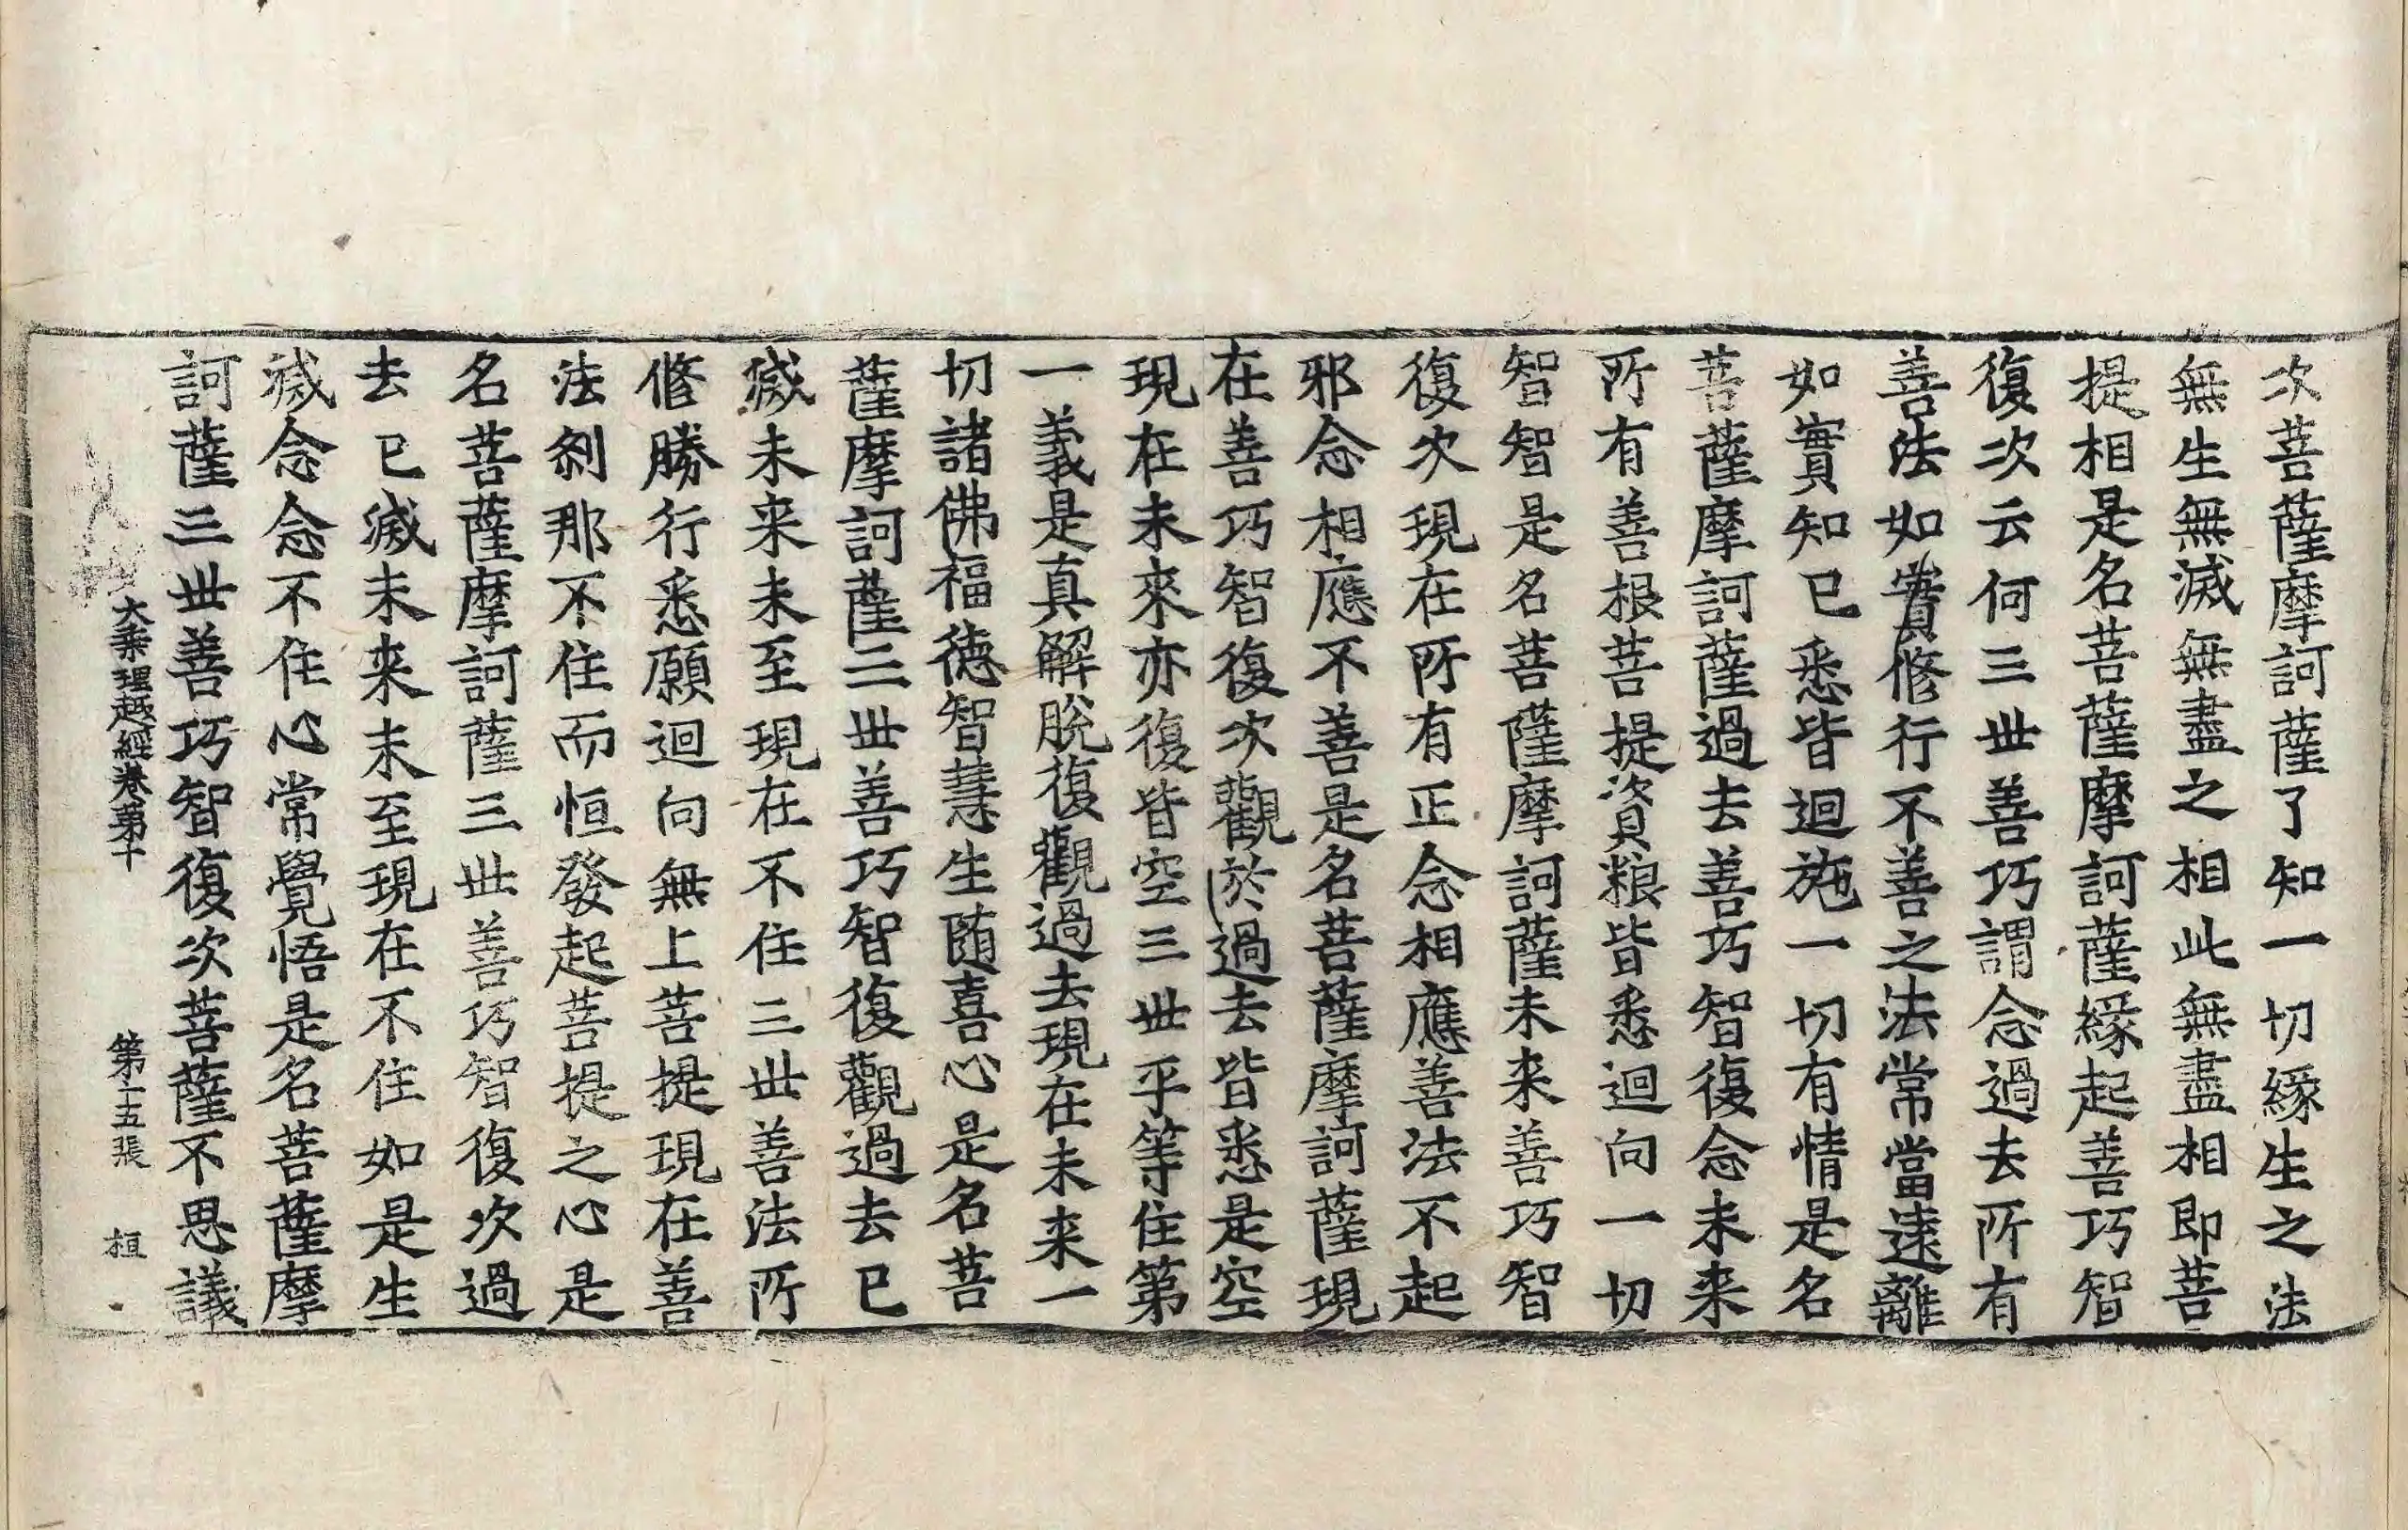 次菩薩摩訶薩了知一切緣生之法
無生無滅無盡之相此無盡相即菩
提相是名菩薩摩訶薩緣起善巧智
復次云何三世善巧謂念過去所有
善法如實修行不善之法常當遠離
如實知已悉皆迴施一切有情是名
菩薩摩訶薩過去善巧智復念未来
所有善根菩提資粮皆悉迴向一切
智智是名菩薩摩訶薩未来善巧智
復次現在所有正念相應善法不起
邪念相應不善是名菩薩摩訶薩現
在善巧智復次觀於過去皆悉是空
現在未來亦復皆空三世平等住第
一義是真解脫復觀過去現在未来一
切諸佛福德智慧生随喜心是名菩
薩摩訶薩三世善巧智復觀過去已
滅未来未至現在不住三世善法所
修勝行悉願迴向無上菩提現在善
法刹那不住而恒發起菩提之心是
名菩薩摩訶薩三世善巧智復次過
去已滅未来未至現在不住如是生
滅念念不住心常覺悟是名菩薩摩
訶薩三世善巧智復次菩薩不思議
大乘理趣經卷第十 第十五張 桓